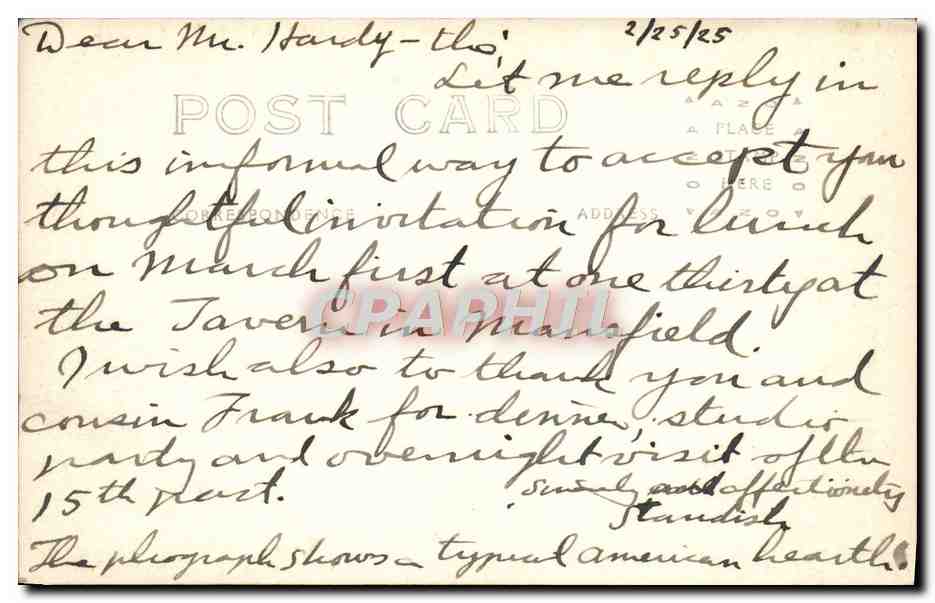 Dear Mr. Hardy - tho' 2/25/25
Let me reply in
POST CARD
PLACE
this informal way to accept your
HERE
thoughtful invitation for lunch
CORRESPONDENCE ADDRESS
on March first at one thirty at
CPAPHIL
the Tavern in Mansfield.
I wish also to thank you and
cousin Frank for dinner, studio
party and overnight visit of the
15th past.
Sincerely and affectionately
Standish
The phograph shows a typical american hearth.